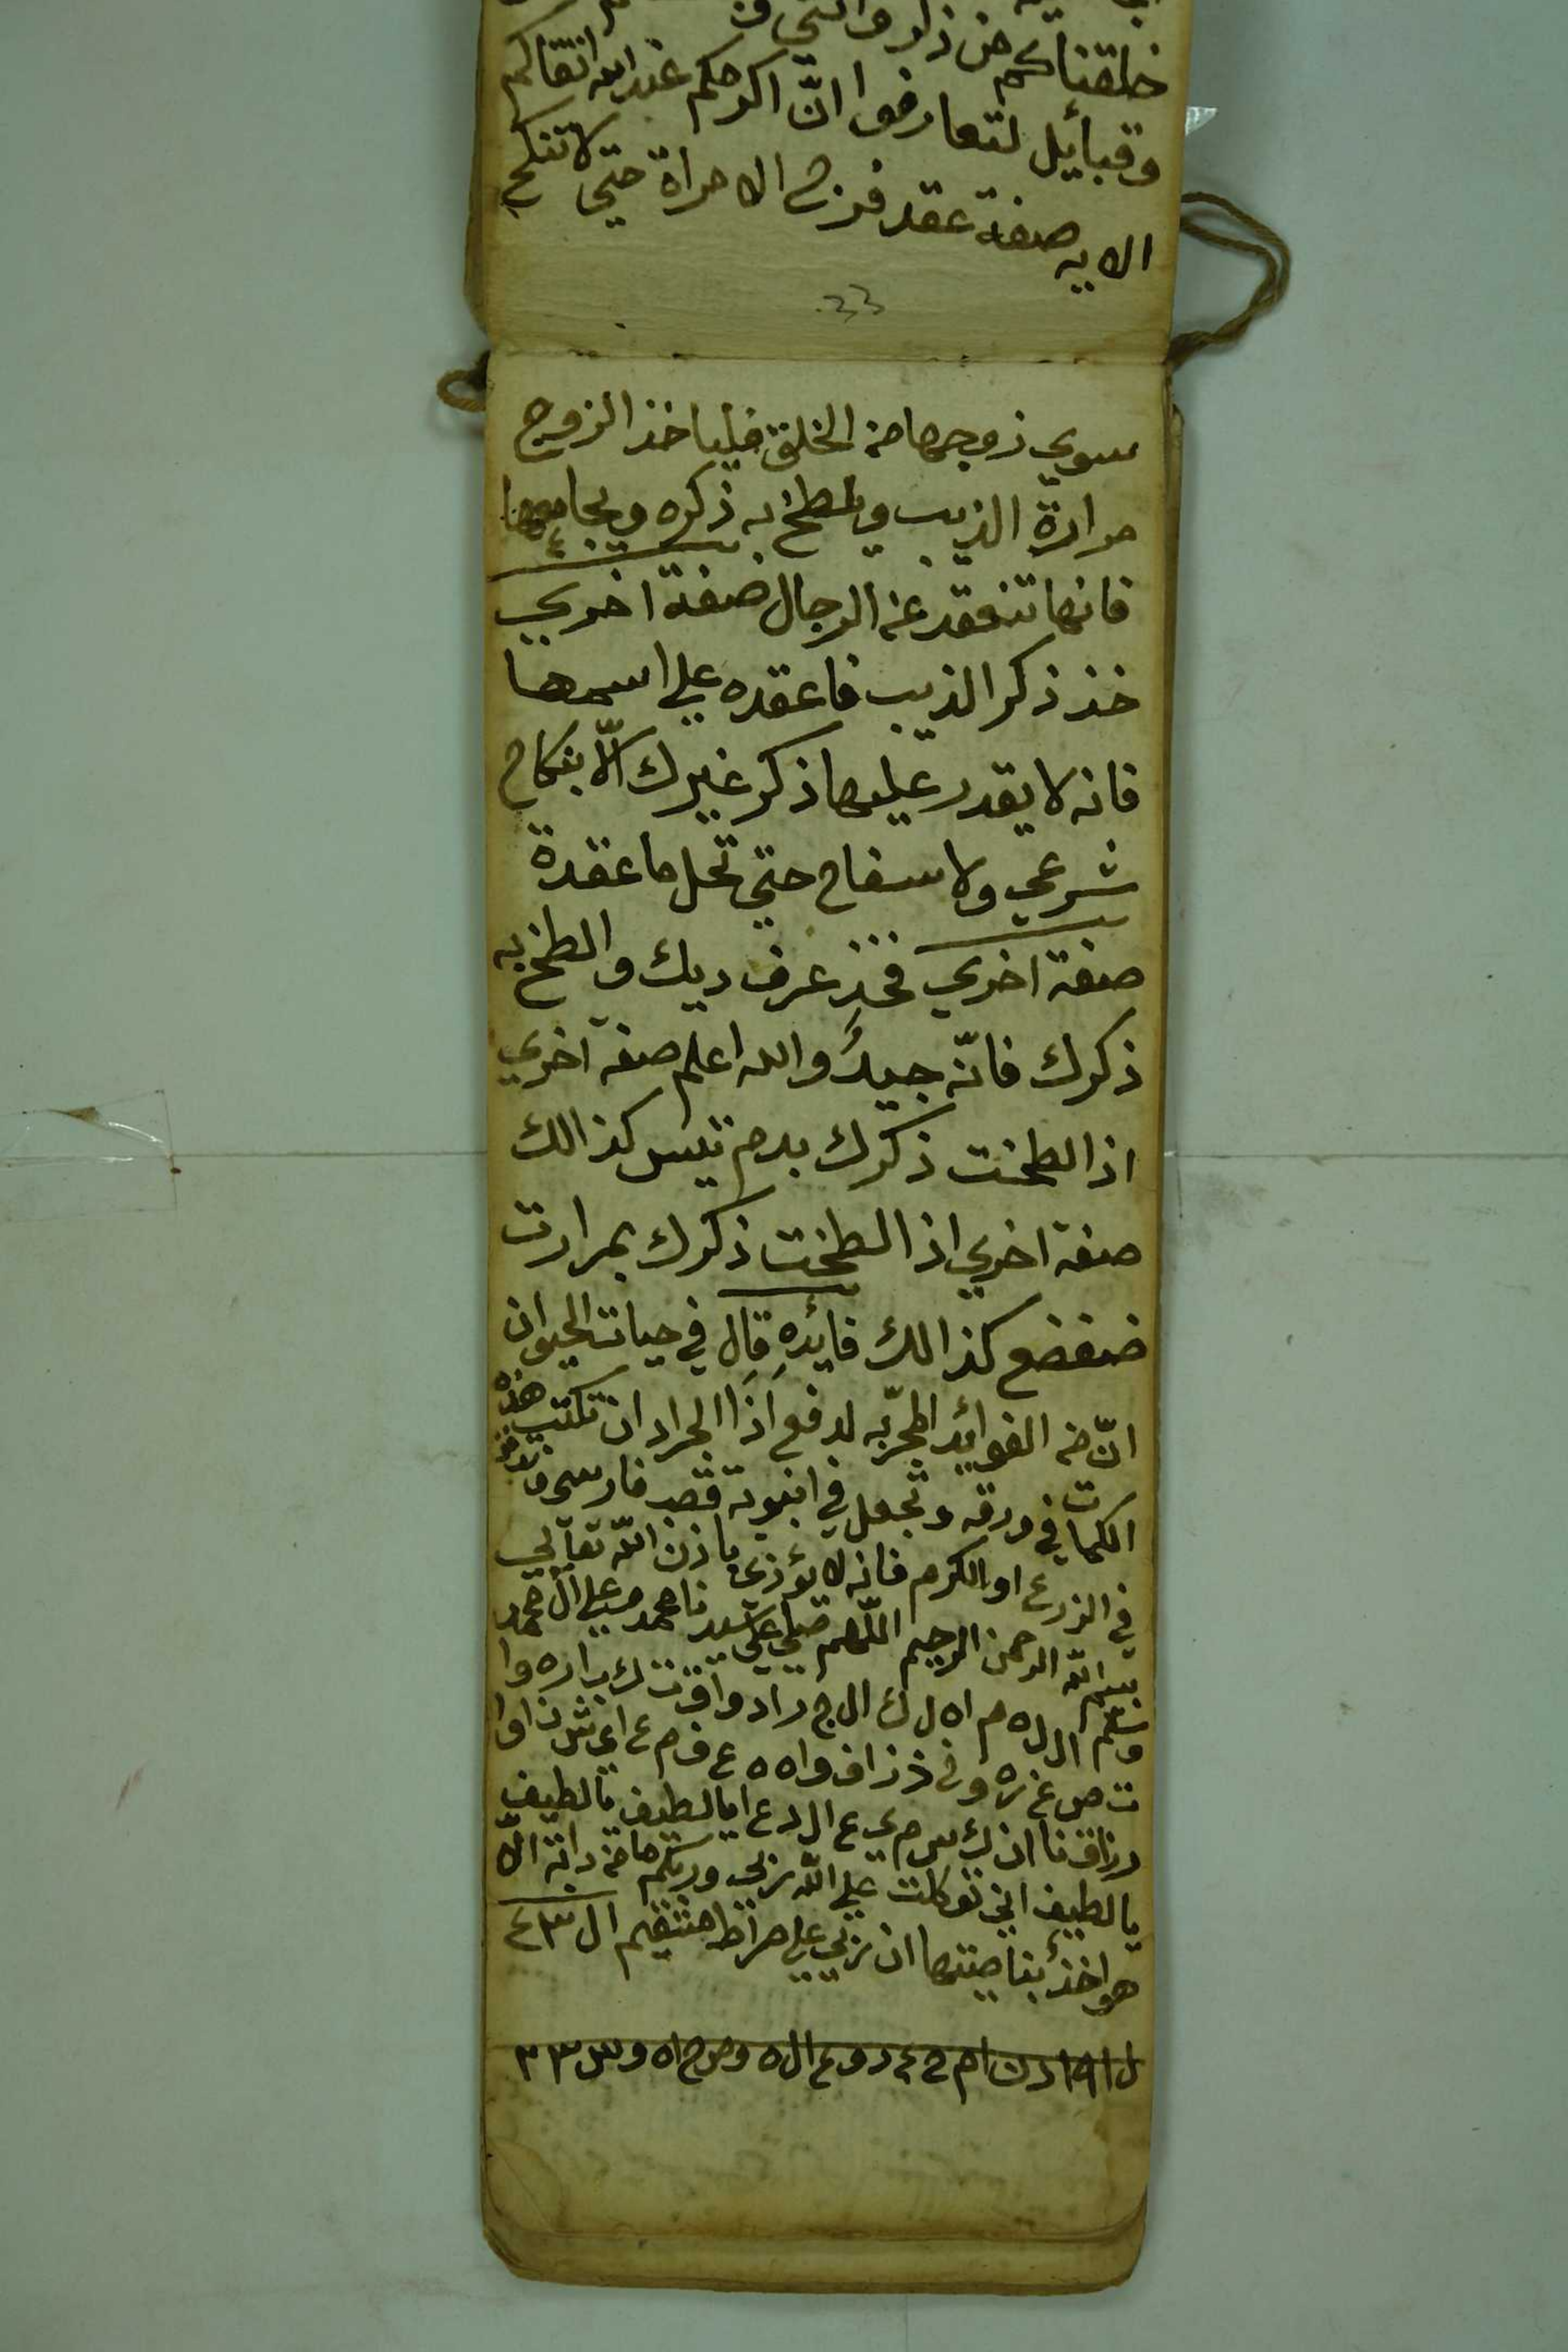 خلقناكم من ذكر وانثى
وقبائيل لتعارفوا انّ اكرمكم عند الله اتقاكم
الايه صفة عقد فرج الامراة حتي لا تنكح
33
سوي زوجها من الخلق فلياخذ الزوج
مرارة الذيب ويلطخ به ذكره ويجامعها
فانها تنعقد عن الرجال صفة اخري
خذ ذكر الذيب فاعقده علي اسمها
فانه لا يقدر عليها ذكر غيرك الّا بنكاح
شرعي ولا سفاح حتي تحل ما عقدة
صفة اخري فخذ عرف ديك والطخ به
ذكرك فانّه جيدٌ والله اعلم صفة اخري
اذا لطخت ذكرك بدم تيس كذالك
صفة اخري اذا لطخت ذكرك بمرارت
ضفضع كذالك فايده قال في حيات الحيوان
انّ من الفوائيد المجرّبه لدفع اذا الجراد ان تكتب هذه
الكلمات في ورقه وتجعل في انبوبة قصب فارسي وتدفن
في الزرع او الكرم فانه لا يؤذي باذن الله تعالي
بسم الله الرحمن الرحيم اللّهم صلي علي سيدنا محمد وعلي آل محمد
وسلم ال ل ه م اه ل ك ال ج ر ا د و ا ق ت ك ب ا ر ه و ا
ت ص غ ره و
يا لطيف اني توكلت علي الله ربي وربكم ما من دابة الّا
هو اخذ بناصيتها ان ربي علي صراط مستقيم